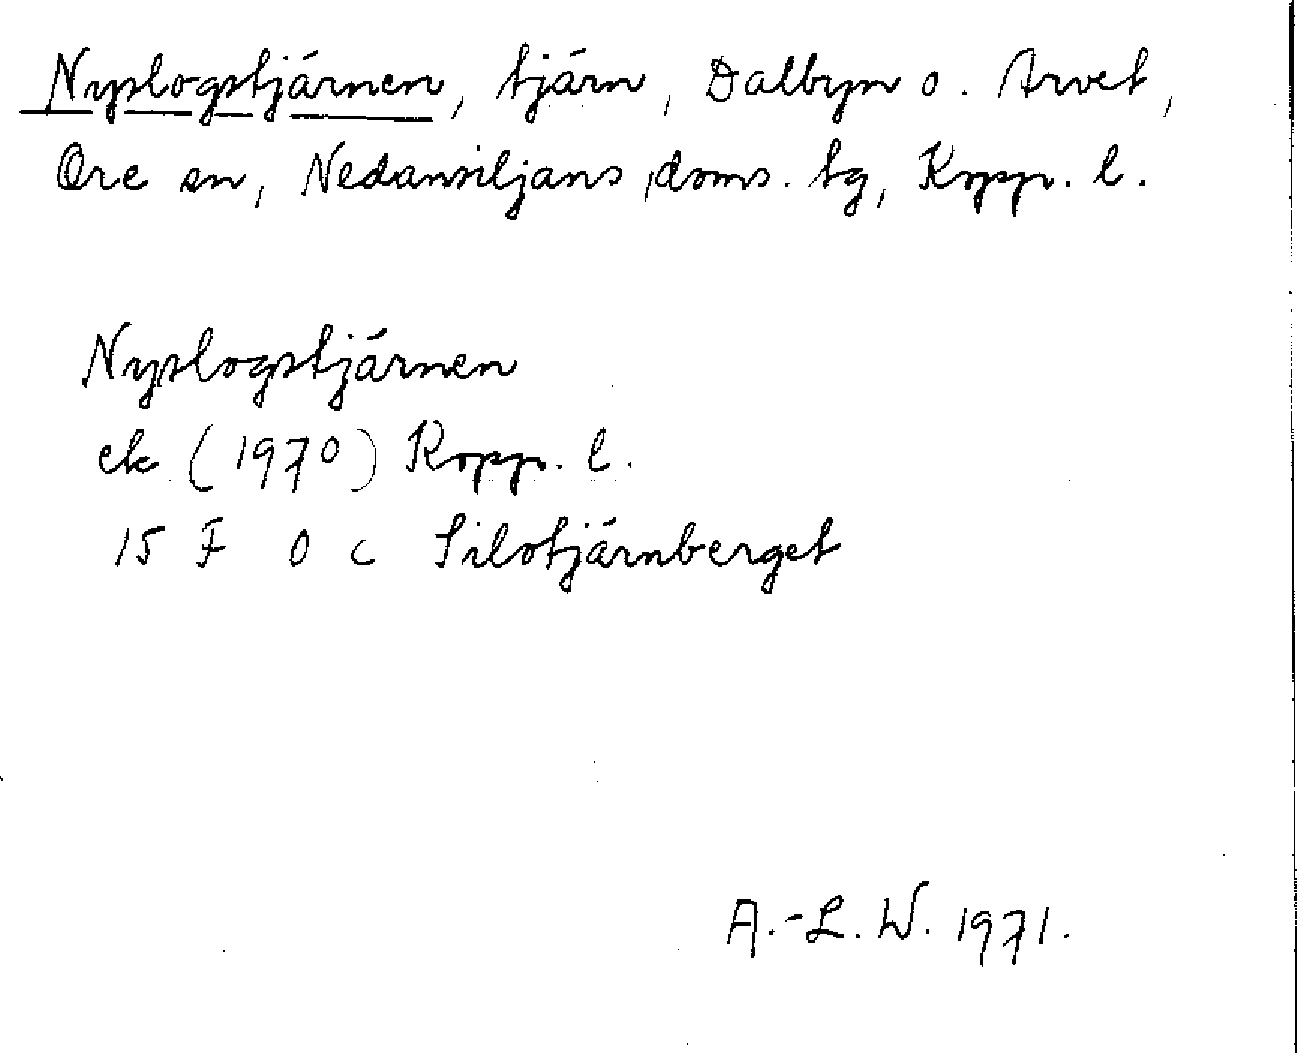 Nyslogstjärnen, tjärn, Dalbyn o. Arvet,
Ore sn, Nedansiljans doms. tg, Kopp. l.
Nyslogstjärnen
ek (1970) Kopp. l.
15 F 0 c Silotjärnberget
A.-L. W. 1971.